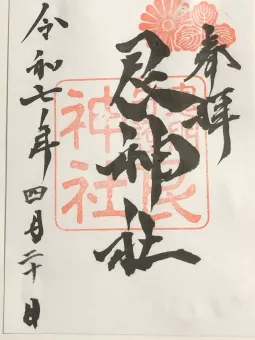 奉拝
艮神社
艮神社
令和七年四月二十日